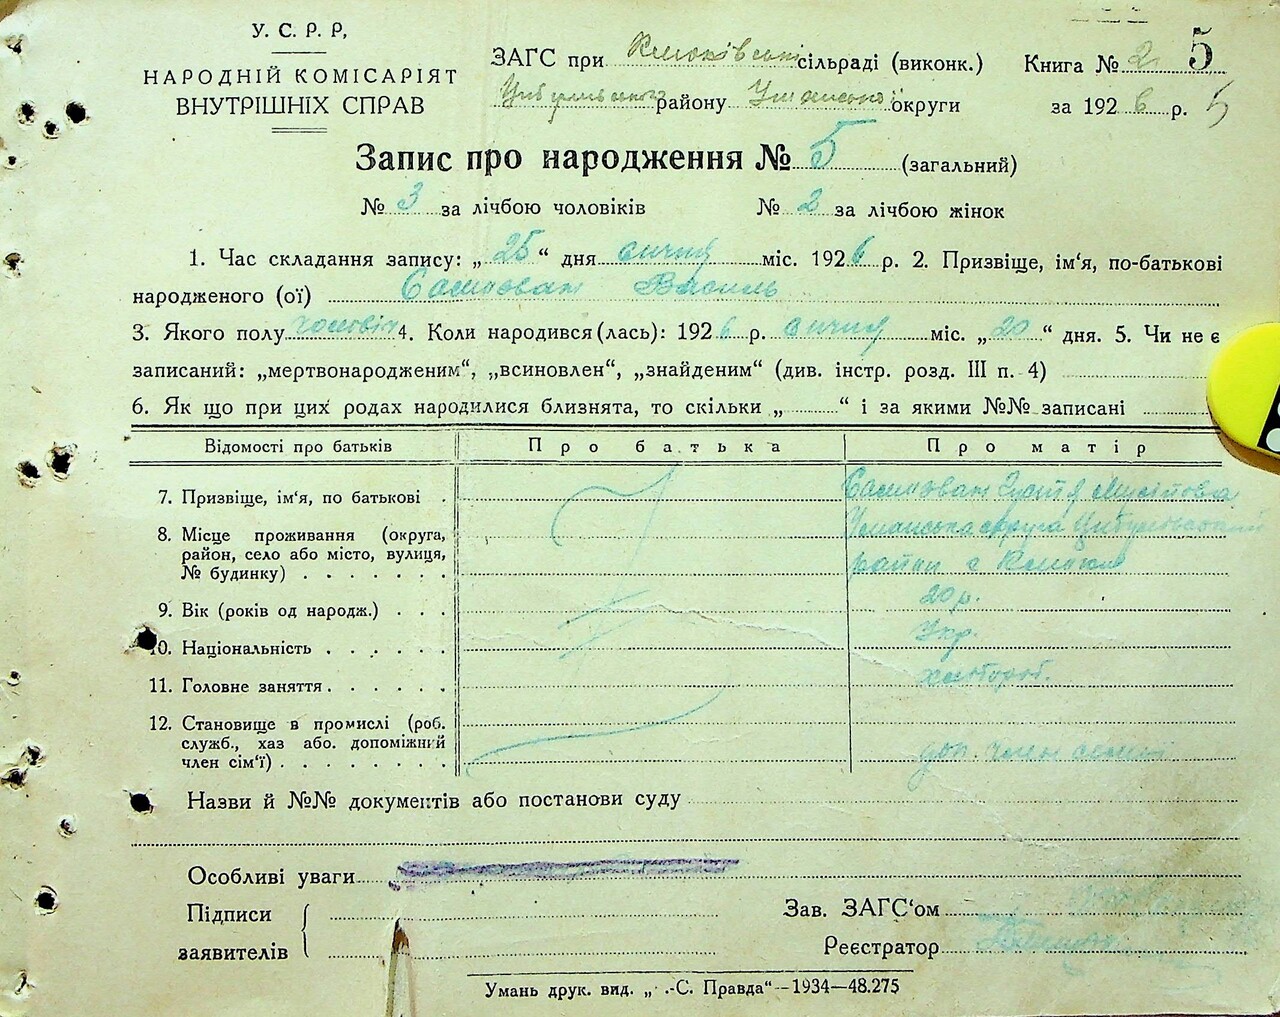 У. С. Р. Р,
НАРОДНІЙ КОМІСАРІЯТ
ВНУТРІШНІХ СПРАВ
ЗАГС при сільраді (виконк.)
району округи
Книга № 2 5
за 192 6 р. 5
Запис про народження № 5 (загальний)
№ 3 за лічбою чоловіків № 2 за лічбою жінок
1. Час складання запису: „ 25 “ дня січня міс. 192 6 р. 2. Призвіще, ім‘я, по-батькові
народженого (ої) Василь
3. Якого полу 4. Коли народився (лась): 192 6 р. січня міс. „ 20 “ дня. 5. Чи не є
записаний: „мертвонародженим“, „всиновлен“, „знайденим“ (див. інстр. розд. III п. 4)
6. Як що при цих родах народилися близнята, то скільки „ “ і за якими №№ записані
Відомості про батьків Про батька Про матір
7. Призвіще, ім‘я, по батькові .
8. Місце проживання (округа,
район, село або місто, вулиця,
№ будинку) . . . . . . .
Уманська округа
9. Вік (років од народж.) . . . 20 р.
10. Національність . . . . . . Укр.
11. Головне заняття . . . . . . хлібороб.
12. Становище в промислі (роб.
служб., хаз або. допоміжний
член сім‘ї) . . . . . . . . доп. член семьї
Назви й №№ документів або постанови суду
Особливі уваги
Підписи
заявителів
Зав. ЗАГС‘ом
Реєстратор
Умань друк. вид. „ .-С. Правда“—1934—48.275